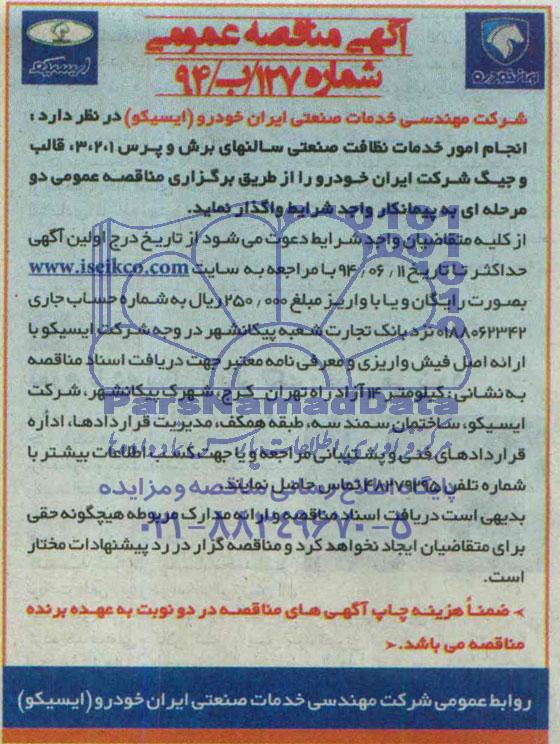 آگهی مناقصه عمومی
شماره ۱۲۷/ب/۹۴
ایسیکو
ایران خودرو
شرکت مهندسی خدمات صنعتی ایران خودرو (ایسیکو) در نظر دارد :
انجام امور خدمات نظافت صنعتی سالنهای برش و پرس ۳،۲،۱، قالب
و جیگ شرکت ایران خودرو را از طریق برگزاری مناقصه عمومی دو
مرحله ای به پیمانکار واجد شرایط واگذار نماید.
از کلیه متقاضیان واجد شرایط دعوت می شود از تاریخ درج اولین آگهی
حداکثر تا تاریخ ۹۴/۰۶/۱۱ با مراجعه به سایت www.iseikco.com
بصورت رایگان و یا با واریز مبلغ ۲۵۰/۰۰۰ ریال به شماره حساب جاری
۰۱۸۸۰۶۲۳۴۲ نزد بانک تجارت شعبه پیکانشهر در وجه شرکت ایسیکو با
ارائه اصل فیش واریزی و معرفی نامه معتبر جهت دریافت اسناد مناقصه
به نشانی : کیلومتر ۱۴ آزاد راه تهران _ کرج، شهرک پیکانشهر، شرکت
ایسیکو، ساختمان سمند سه، طبقه همکف، مدیریت قراردادها، اداره
قراردادهای فنی و پشتیبانی مراجعه و یا جهت کسب اطلاعات بیشتر با
شماره تلفن ۴۸۲۷۹۲۹۵ تماس حاصل نمایند.
بدیهی است دریافت اسناد مناقصه و ارائه مدارک مربوطه هیچگونه حقی
برای متقاضیان ایجاد نخواهد کرد و مناقصه گزار در رد پیشنهادات مختار
است.
> ضمناً هزینه چاپ آگهی های مناقصه در دو نوبت به عهده برنده
مناقصه می باشد.<
روابط عمومی شرکت مهندسی خدمات صنعتی ایران خودرو (ایسیکو)
ParsNamadData
پایگاه اطلاع رسانی مناقصه و مزایده
۰۲۱-۸۸۳۴۹۶۷۰-۵